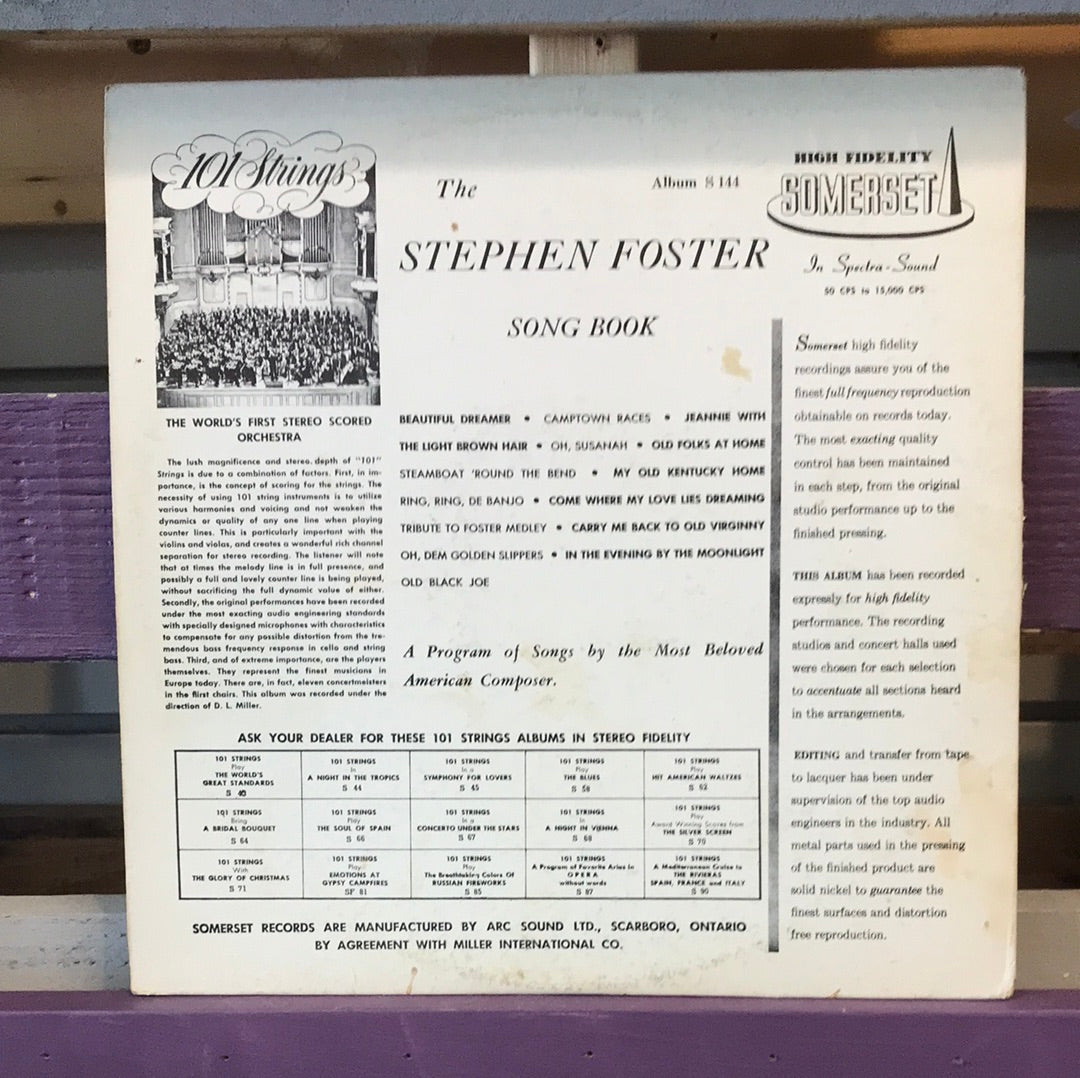 101 Strings
The
Album S 144
HIGH FIDELITY
SOMERSET
In Spectra-Sound
50 CPS to 15,000 CPS
STEPHEN FOSTER
SONG BOOK
THE WORLD'S FIRST STEREO SCORED
ORCHESTRA
The lush magnificence and stereo. depth of "101"
Strings is due to a combination of factors. First, in im-
portance, is the concept of scoring for the strings. The
necessity of using 101 string instruments is to utilize
various harmonies and voicing and not weaken the
dynamics or quality of any one line when playing
counter lines. This is particularly important with the
violins and violas, and creates a wonderful rich channel
separation for stereo recording. The listener will note
that at times the melody line is in full presence, and
possibly a full and lovely counter line is being played,
without sacrificing the full dynamic value of either.
Secondly, the original performances have been recorded
under the most exacting audio engineering standards
with specially designed microphones with characteristics
to compensate for any possible distortion from the tre-
mendous bass frequency response in cello and string
bass. Third, and of extreme importance, are the players
themselves. They represent the finest musicians in
Europe today. There are, in fact, eleven concertmeisters
in the first chairs. This album was recorded under the
direction of D. L. Miller.
BEAUTIFUL DREAMER • CAMPTOWN RACES • JEANNIE WITH
THE LIGHT BROWN HAIR • OH, SUSANAH • OLD FOLKS AT HOME
STEAMBOAT 'ROUND THE BEND • MY OLD KENTUCKY HOME
RING, RING, DE BANJO • COME WHERE MY LOVE LIES DREAMING
TRIBUTE TO FOSTER MEDLEY • CARRY ME BACK TO OLD VIRGINNY
OH, DEM GOLDEN SLIPPERS • IN THE EVENING BY THE MOONLIGHT
OLD BLACK JOE
A Program of Songs by the Most Beloved
American Composer.
Somerset high fidelity
recordings assure you of the
finest full frequency reproduction
obtainable on records today.
The most exacting quality
control has been maintained
in each step, from the original
studio performance up to the
finished pressing.
THIS ALBUM has been recorded
expressly for high fidelity
performance. The recording
studios and concert halls used
were chosen for each selection
to accentuate all sections heard
in the arrangements.
EDITING and transfer from tape
to lacquer has been under
supervision of the top audio
engineers in the industry. All
metal parts used in the pressing
of the finished product are
solid nickel to guarantee the
finest surfaces and distortion
free reproduction.
ASK YOUR DEALER FOR THESE 101 STRINGS ALBUMS IN STEREO FIDELITY
101 STRINGS
Play
THE WORLD'S
GREAT STANDARDS
S 40
101 STRINGS
In
A NIGHT IN THE TROPICS
S 44
101 STRINGS
In a
SYMPHONY FOR LOVERS
S 45
101 STRINGS
Play
THE BLUES
S 58
101 STRINGS
Play
HIT AMERICAN WALTZES
S 62
101 STRINGS
Bring
A BRIDAL BOUQUET
S 64
101 STRINGS
Play
THE SOUL OF SPAIN
S 66
101 STRINGS
In a
CONCERTO UNDER THE STARS
S 67
101 STRINGS
In
A NIGHT IN VIENNA
S 68
101 STRINGS
Play
Award Winning Scores from
THE SILVER SCREEN
S 70
101 STRINGS
With
THE GLORY OF CHRISTMAS
S 71
101 STRINGS
Play
EMOTIONS AT
GYPSY CAMPFIRES
SF 81
101 STRINGS
Play
The Breathtaking Colors Of
RUSSIAN FIREWORKS
S 85
101 STRINGS
A Program of Favorite Arias in
OPERA
without words
S 87
101 STRINGS
A Mediterranean Cruise to
THE RIVIERAS
SPAIN, FRANCE and ITALY
S 90
SOMERSET RECORDS ARE MANUFACTURED BY ARC SOUND LTD., SCARBORO, ONTARIO
BY AGREEMENT WITH MILLER INTERNATIONAL CO.